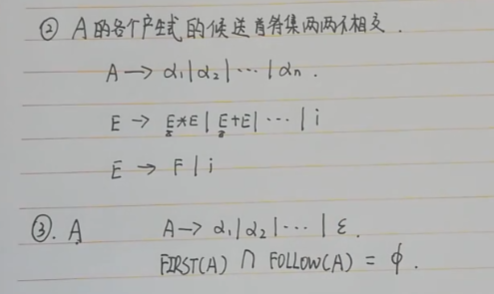 ② A的各个产生式的候选首符集两两不相交.
A → α₁|α₂|⋯|αn.
E → E*E|E+E|⋯|i
E → F|i
③. A A → α₁|α₂|⋯|ε.
FIRST(A) ∩ FOLLOW(A) = ϕ.